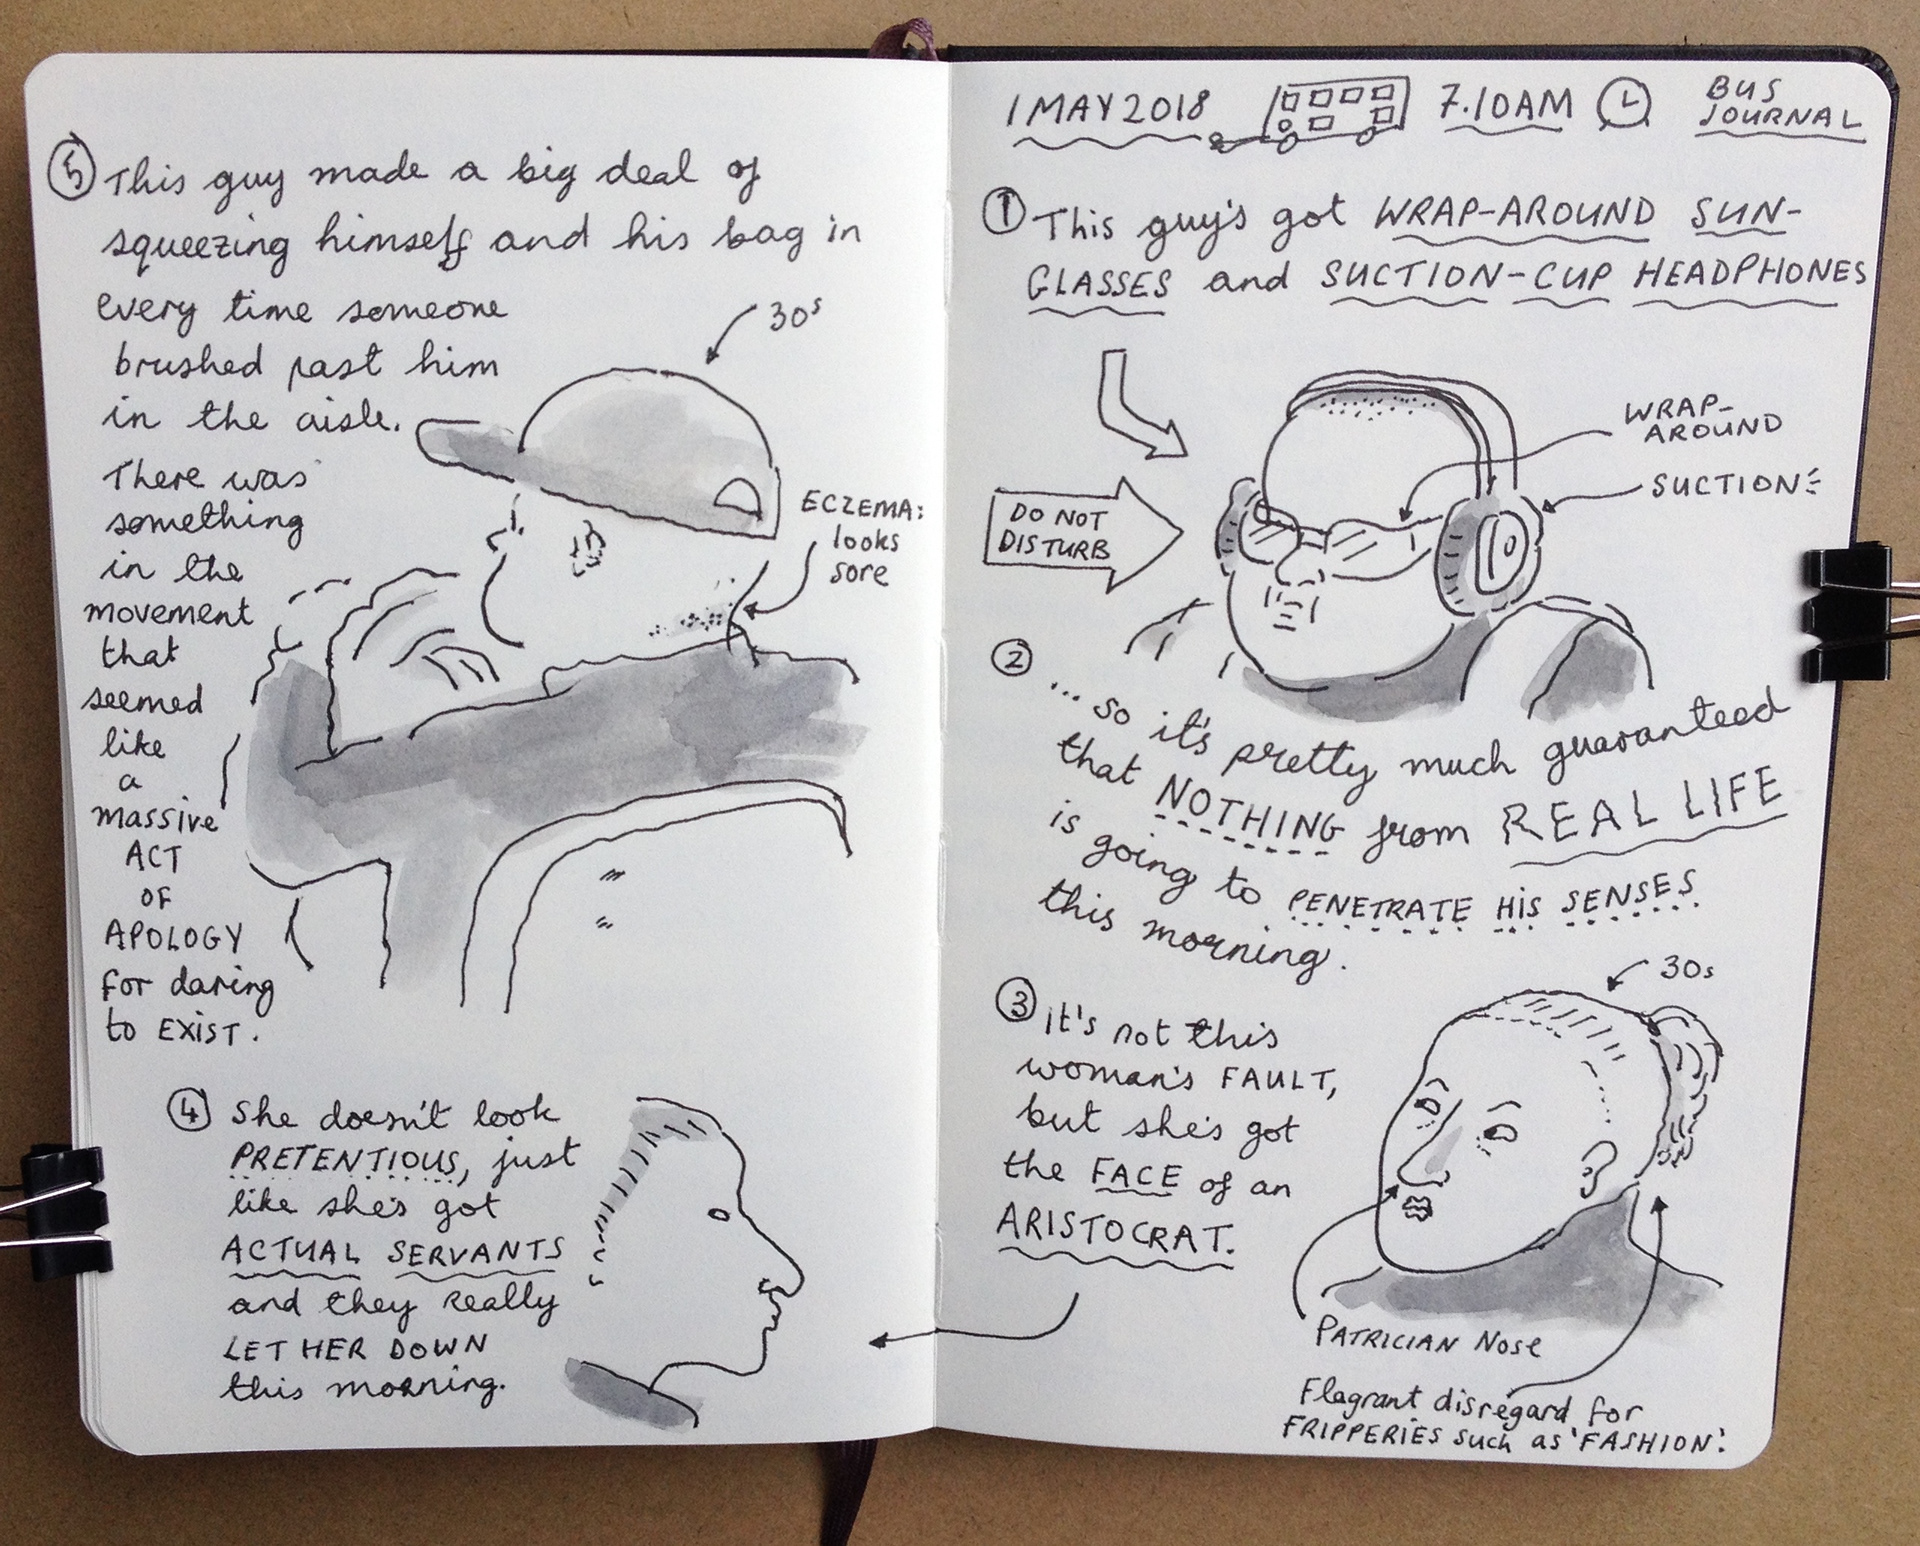 1 MAY 2018 7.10AM BUS
JOURNAL
① This guy's got WRAP-AROUND SUN-
GLASSES and SUCTION-CUP HEADPHONES
WRAP-
AROUND
SUCTION
DO NOT
DISTURB
② ... so it's pretty much guaranteed
that NOTHING from REAL LIFE
is going to PENETRATE HIS SENSES
this morning.
30s
③ It's not this
woman's FAULT,
but she's got
the FACE of an
ARISTOCRAT.
PATRICIAN NOSE
Flagrant disregard for
FRIPPERIES such as 'FASHION'.
④ She doesn't look
PRETENTIOUS, just
like she's got
ACTUAL SERVANTS
and they really
LET HER DOWN
this morning.
⑤ This guy made a big deal of
squeezing himself and his bag in
every time someone
brushed past him
in the aisle.
30s
ECZEMA:
looks
sore
There was
something
in the
movement
that
seemed
like
a
massive
ACT
OF
APOLOGY
for daring
to EXIST.